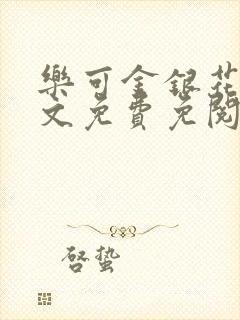 樂可金銀花
文免費免閱
啓蟄